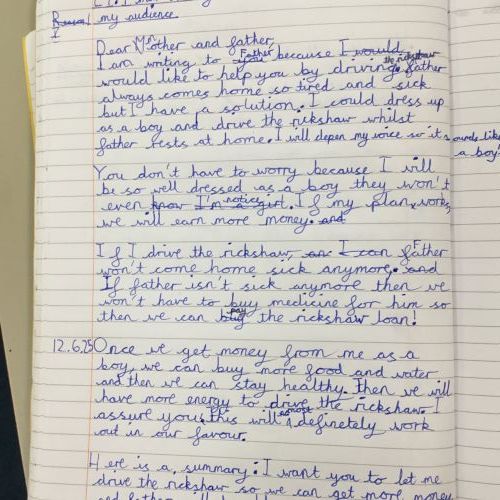 my audience
I
Dear Mother and father,
I am writing to Father because I would
would like to help you by driving the rickshaw. father
always comes home so tired and sick
but I have a solution. I could dress up
as a boy and drive the rickshaw whilst
father rests at home. I will depen my voice so it sounds like
a boy!
You don't have to worry because I will
be so well dressed as a boy they won't
even know notice I'm a girl. If my plan works,
we will earn more money. and
If I drive the rickshaw, I can Father
won't come home sick anymore. and
If father isn't sick anymore then we
won't have to buy medicine for him so
then we can buy pay the rickshaw loan!
12.6.25 Once we get money from me as a
boy, we can buy more food and water
and then we can stay healthy. Then we will
have more energy to drive the rickshaw. I
assure you this will definetely work
out in our favour.
Here is a summary: I want you to let me
drive the rickshaw so we can get more money